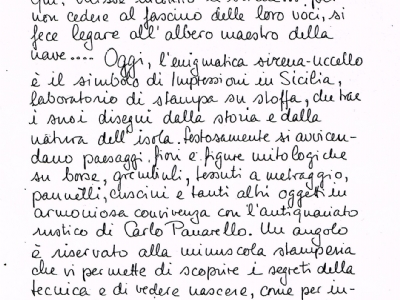 non cedere al fascino delle loro voci, si
fece legare all'albero maestro della
nave..... Oggi, l'enigmatica sirena-uccello
è il simbolo di Impressioni in Sicilia,
laboratorio di stampa su stoffa, che trae
i suoi disegni dalla storia e dalla
natura dell'isola. Festosamente si avvicen-
dano paesaggi, fiori e figure mitologiche
su borse, grembiuli, tessuti a metraggio,
pannelli, cuscini e tanti altri oggetti in
armoniosa convivenza con l'antiquariato
rustico di Carlo Panarello. Un angolo
è riservato alla minuscola stamperia
che vi permette di scoprire i segreti della
tecnica e di vedere nascere, come per in-